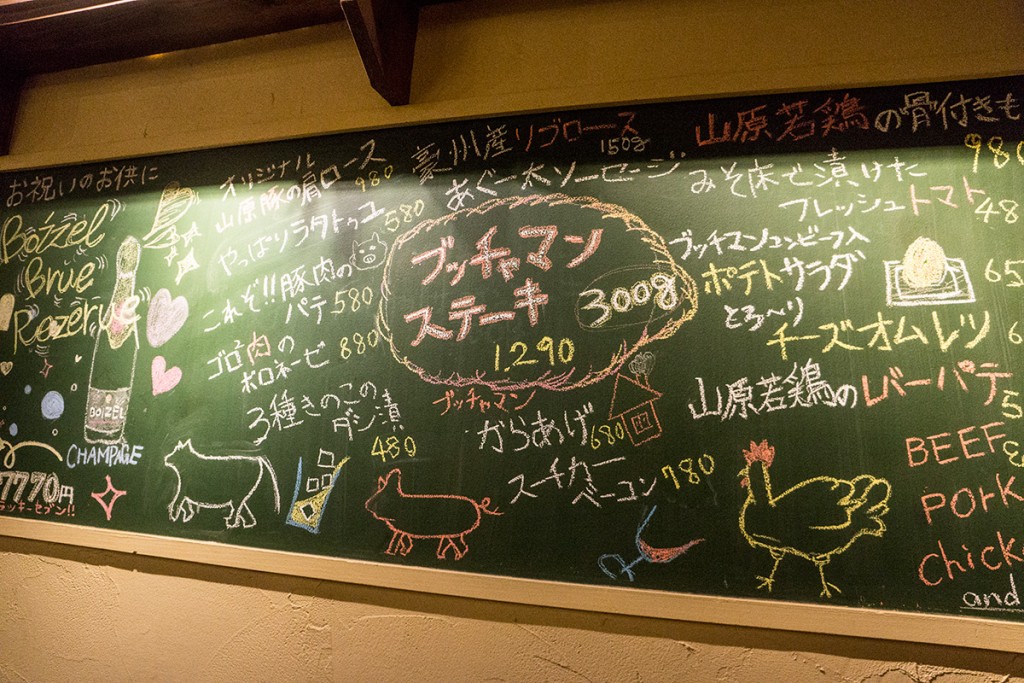 お祝いのお供に
Boizel
Brue
Rezerve
BOIZEL
CHAMPAGE
7770円
ラッキーセブン!!
オリジナル
山原豚の肩ロース
980
やっぱりラタトゥユ 580
これぞ!!豚肉の
パテ 580
ゴロゴロ肉の
ボロネーゼ 880
3種きのこの
ダシ漬
480
豪州産リブロース
150g
あぐー太ソーセージ
ブッチャマン
ステーキ 300g
1.290
ブッチャマン
からあげ 680
スーチカー
ベーコン 780
山原若鶏の骨付きも
980
みそ床で漬けた
フレッシュトマト 48
ブッチマンコンビーフ入
ポテトサラダ 65
とろ〜り
チーズオムレツ 6
山原若鶏のレバーパテ
5
BEEF &
Pork
Chick
and